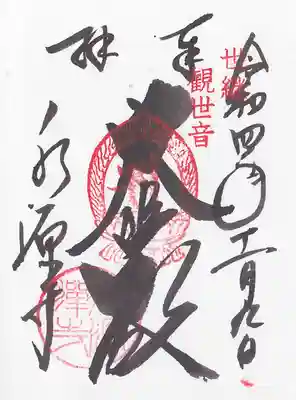 令和四年十一月九日
世継
観世音
奉拝
大悲殿
永源寺